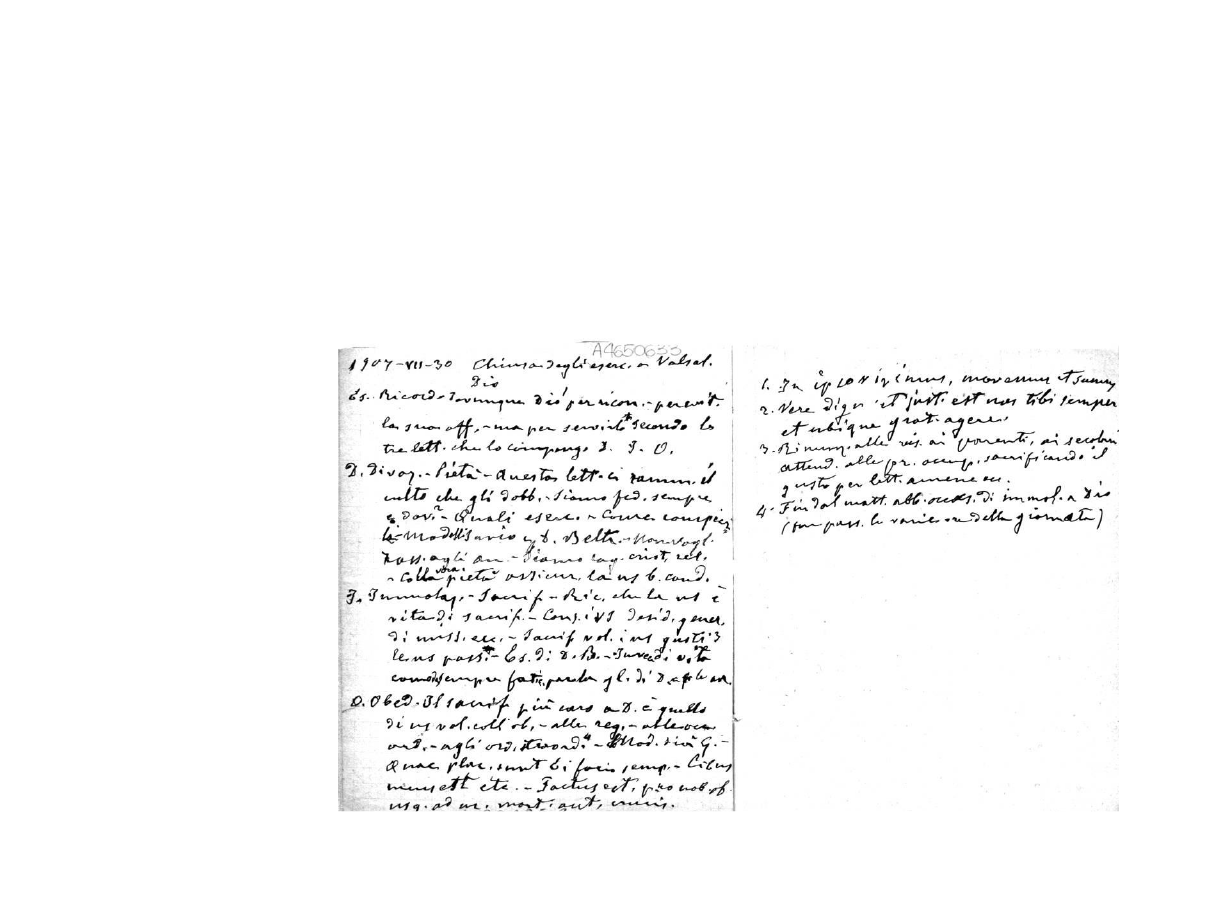 A4650633
1907-VII-30 Chiusa degli eserc. a Valsal.
Dio
Es. Ricord. Dovunque Dio per ricon. - per evit.
la sua off. - ma per servirlo secondo le
tre lett. che lo compongo D. I. O.
D. Divoz. - Pietà - Questa lett. ci ramm. il
culto che gli dobb. - Siamo fed. sempre
e dov. - Quali eserc. - Come compier
li - Modelli D. Beltr. - Non vogl.
pass. agli an. - Siamo rag. crist. rel.
- Colla vera pietà assicur. la ns b. cond.
I. Immolaz. - Sacrif. - Ric. che la ns è
vita di sacrif. - Cons. i vs desid. gener.
di miss. ecc. - Sacrif. vol. i ns gusti
le ns pass. - Es. di D. B. - Invece di vita
comoda sempre fatic. gl. di D.
O. Obed. Il sacrif. più caro a D. è quello
di ns vol. coll' ob. - alle reg. - alle
ord. - agli ord. straord. - Mod. G. -
Quae plac. sunt ei facio semp. - Cibus
meus est etc. - Factus est pro nob. ob.
usq. ad m. mort. aut. crucis.
1. In ipso vivimus, movemur et sumus
2. Vere dign. et just. est nos tibi semper
et ubique grat. agere
3. Rinunz. alle vis. ai parenti, ai secolari
attend. alle pr. occup. sacrificando il
gusto per lett. amene ecc.
4. Fin dal matt. abb. occas. di immol. a Dio
(far pass. le varie ore della giornata)